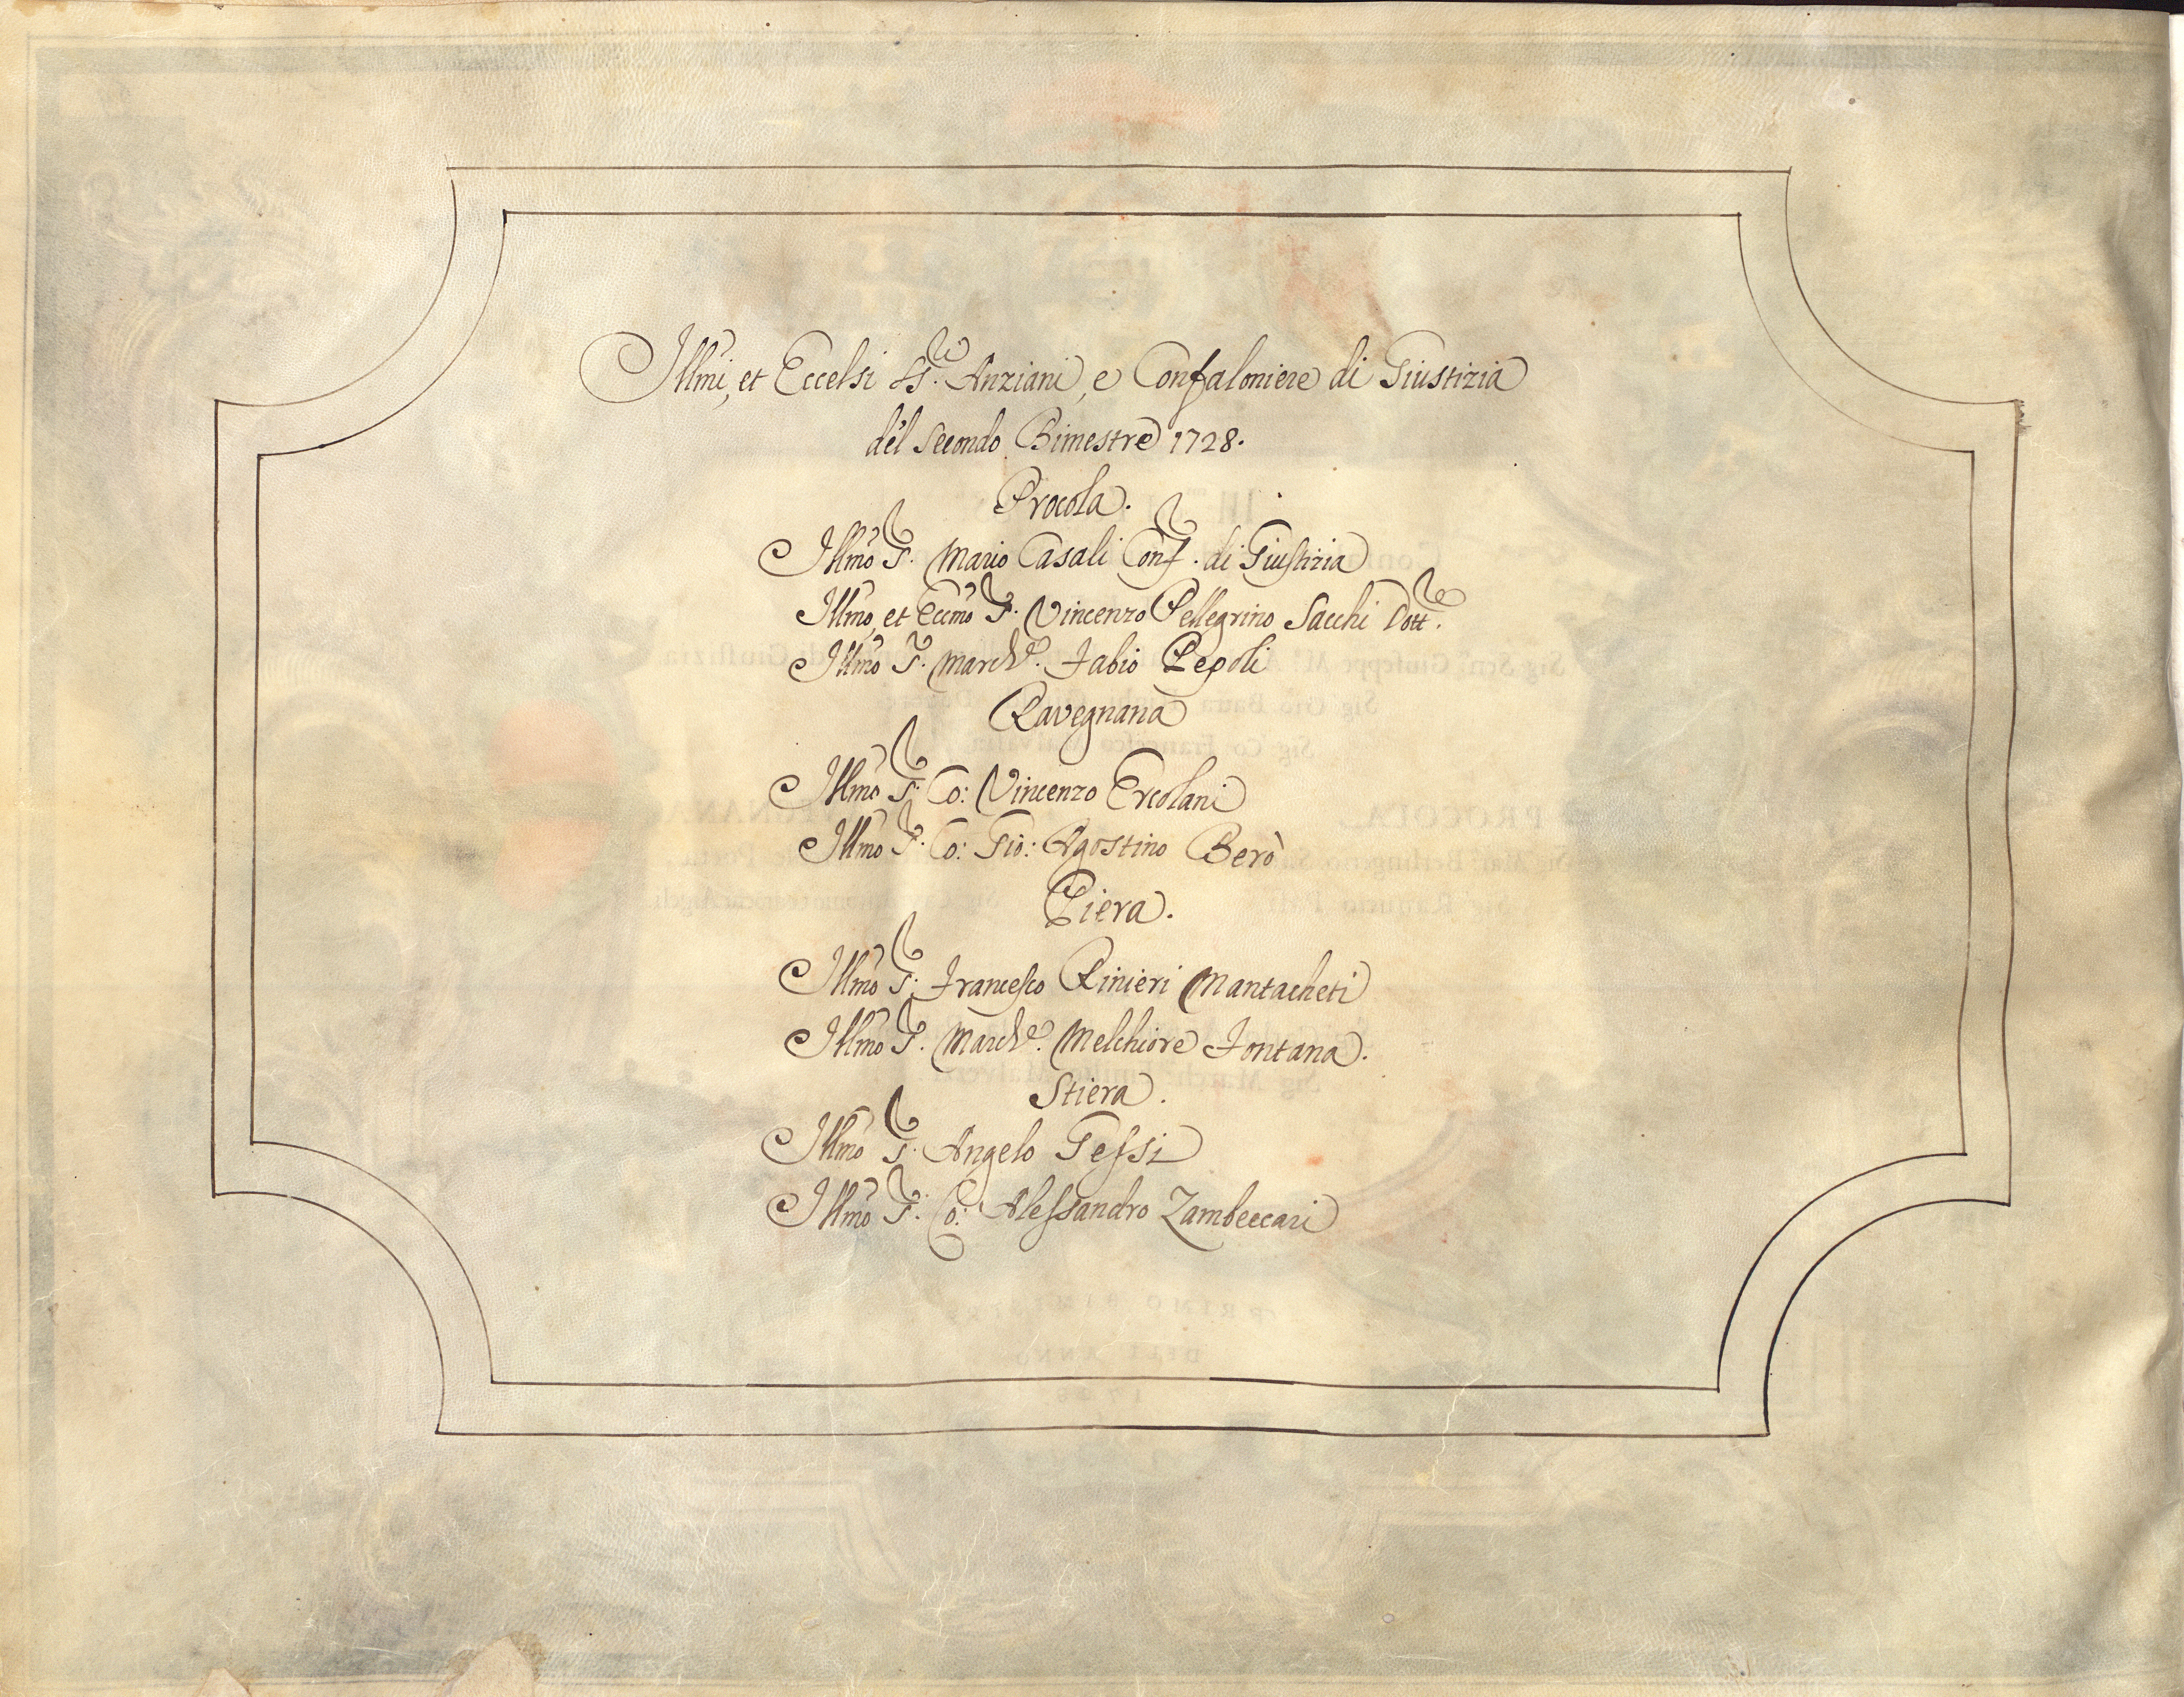 Illmi, et Eccelsi SS.ri Anziani, e Confaloniere di Giustizia
del Secondo Bimestre 1728.
Procola.
Illmo S.r Mario Casali Conf.r di Giustizia
Illmo, et Eccmo S.r Vincenzo Pellegrino Sacchi Dott.re
Illmo S.r March.e Fabio Pepoli
Ravegnana
Illmo S.r Co: Vincenzo Ercolani
Illmo S.r Co: Gio: Agostino Berò
Piera.
Illmo S.r Francesco Rinieri Mantacheti
Illmo S.r March.e Melchiore Fontana.
Stiera.
Illmo S.r Angelo Gessi
Illmo S.r Co: Alessandro Zambeccari